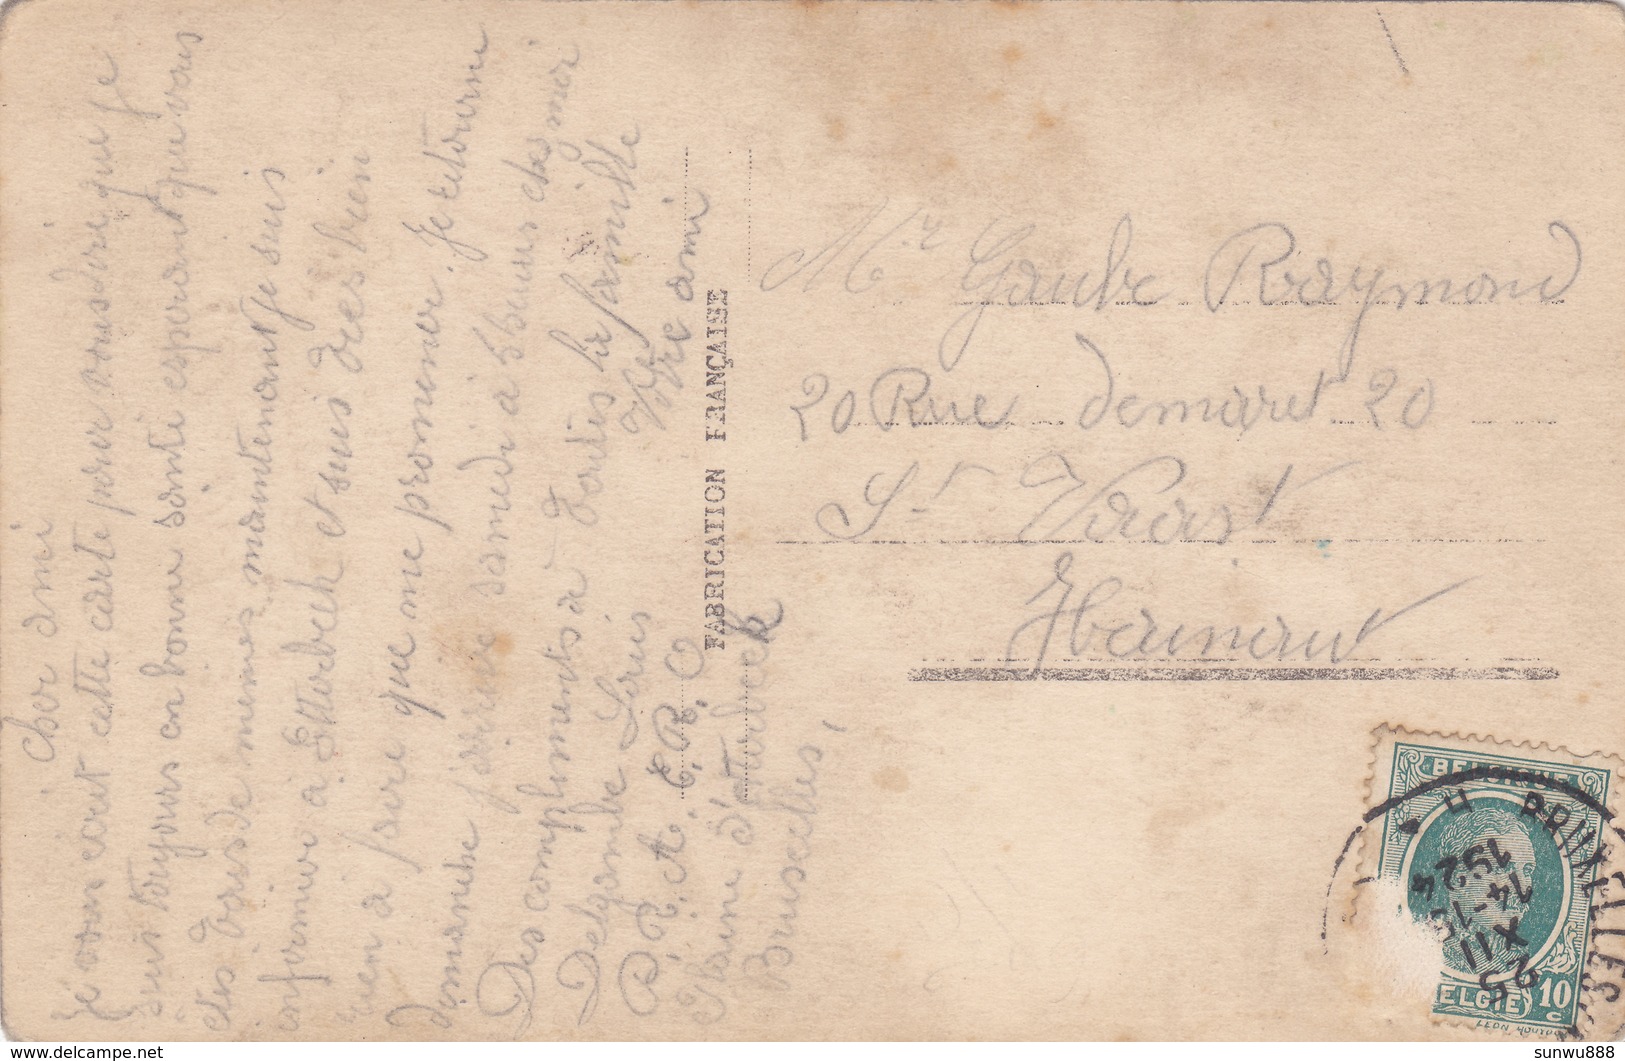 Cher ami
Je vous écrit cette carte pour vous dire que je
suis toujours en bonne santé esperant que vous
etes tous de memes maintenant je suis
infirmier à Etterbeek et suis tres bien
rien à faire que me promener. Je retourne
dimanche j'arrive samedi à 5 heurs chez moi
Des compliments à toutes la famille
Votre ami
Delgambe Louis
P. R. A. E. R. O
Plaine d'etterbeek
Bruxelles,
FABRICATION FRANÇAISE
Mr Gaube Raymond
20 Rue Demaret 20
St Vaast
Hainaut
BELGIQUE
BRUXELLES
25
XII
14-15
1924
BELGIE 10
c
sunwu888